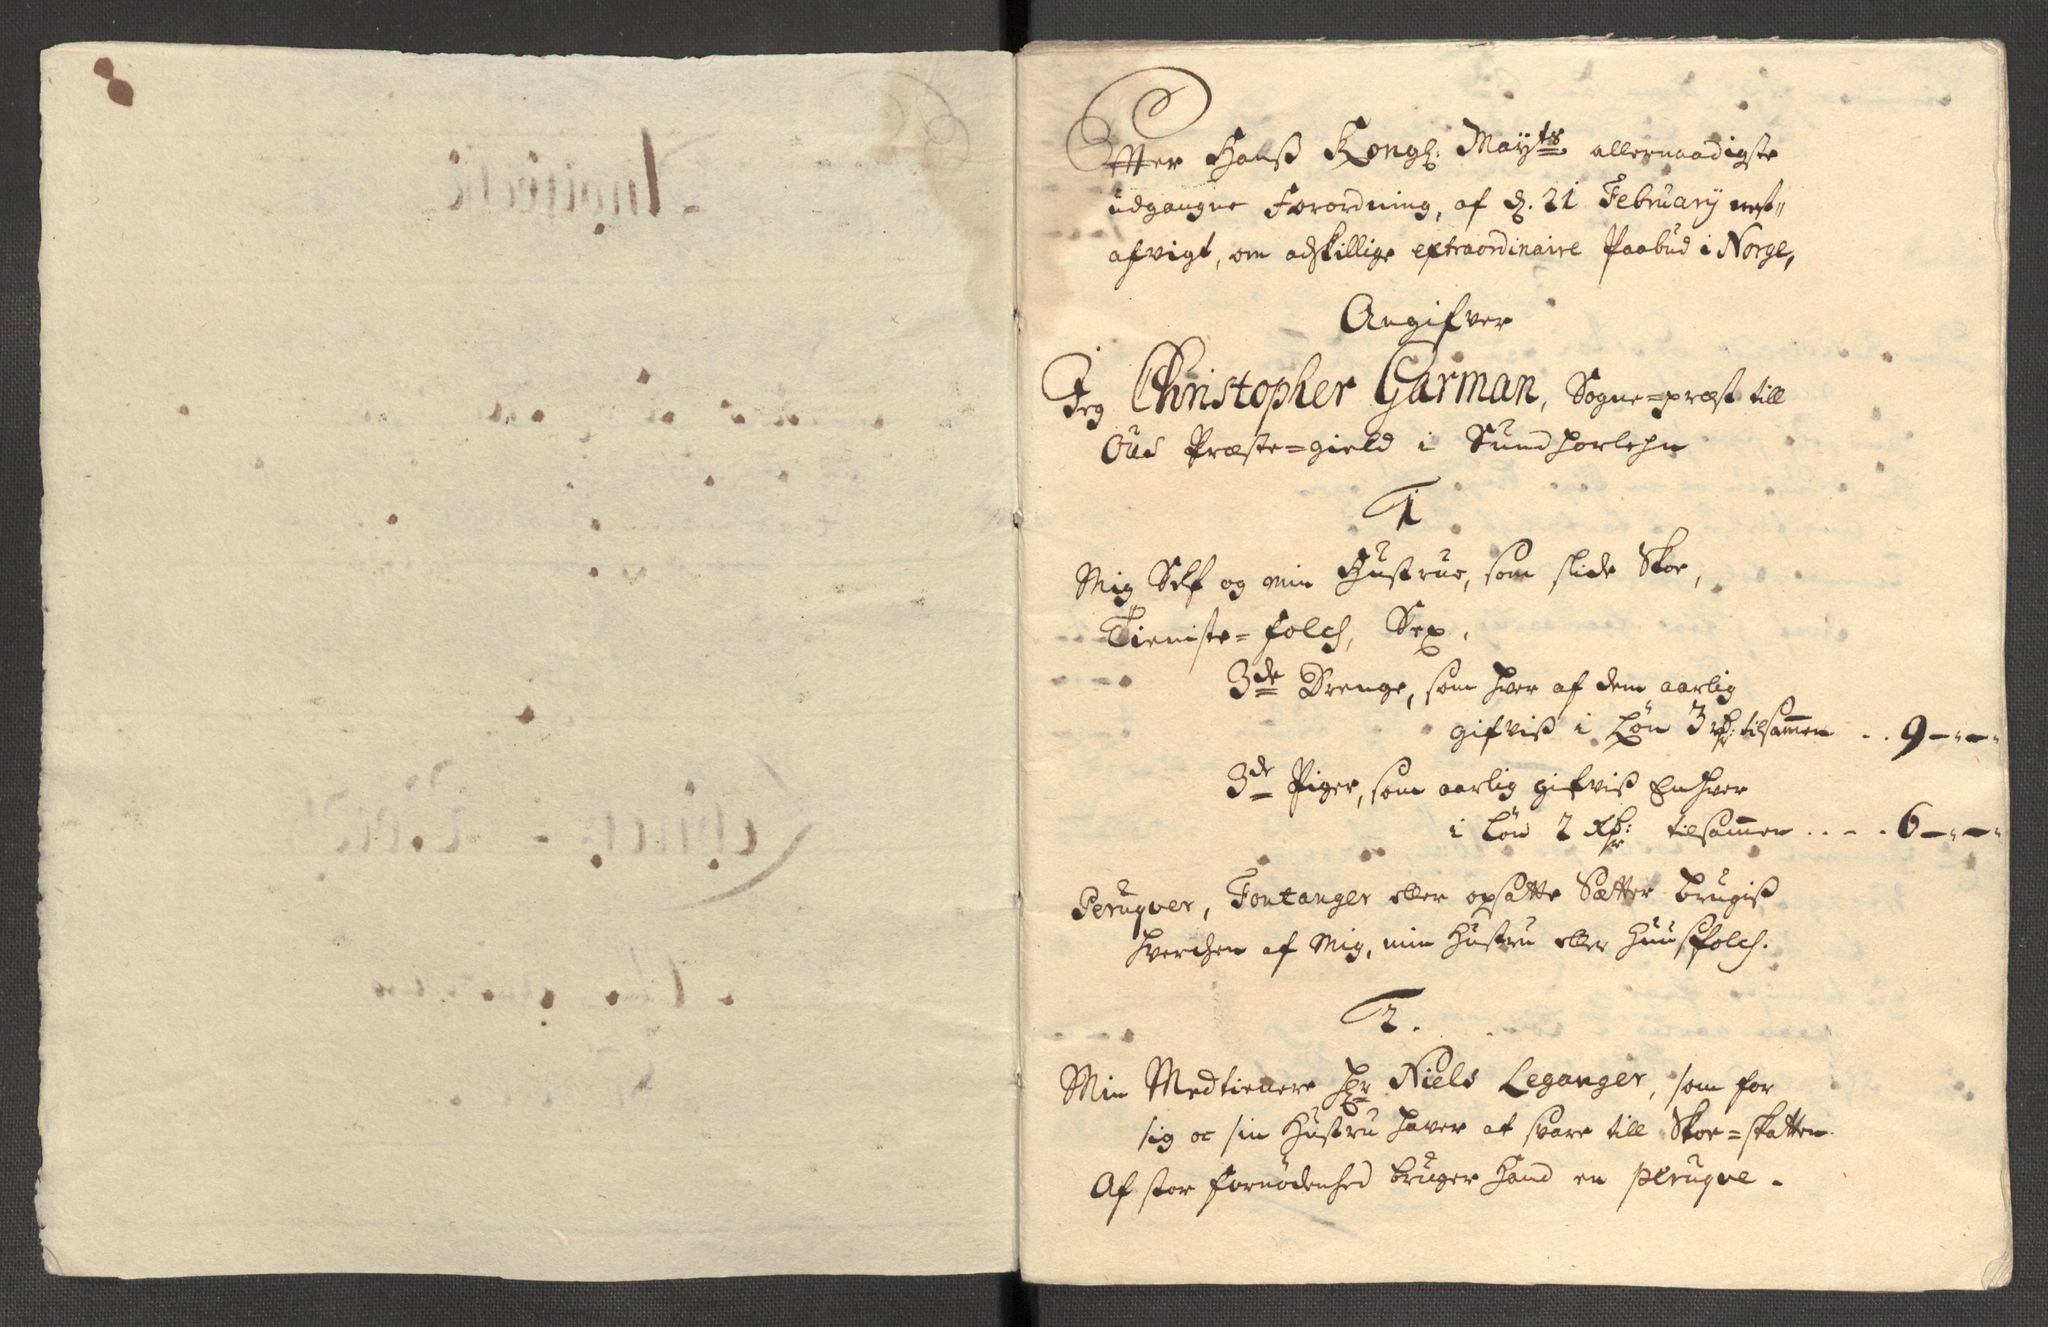 Effter Hanß Kongl: Mayts allernaadigste
udgangne Forordning, af d. 21 February nest-
afvigt, om adskillige extraordinaire Paabud i Norge,
Angifver
Jeg Christopher Garman, Sogne=præst till
Ous Præste=gield i Sundhorlehn
1
Mig Self og min Hustrue, som slide Skoe,
Tieniste=folch, Sex,
3de Drenge, som hver af dem aarlig
gifviß i Løn 3 rdr: tilsammen .. 9 - " - "
3de Piger, som aarlig gifviß Enhver
i Løn 2 Rdr: tilsammen .... 6 - " - "
Peruqver, Fontanger eller opsatte Sætter brugiß
hverchen af Mig, min Hustru eller Huusfolch.
2.
Min Medtienere Hr Niels Leganger, som for
sig oc sin Hustru haver at svare till Skoe=skatten.
Af stor fornødenhed bruger Hand en peruqve.